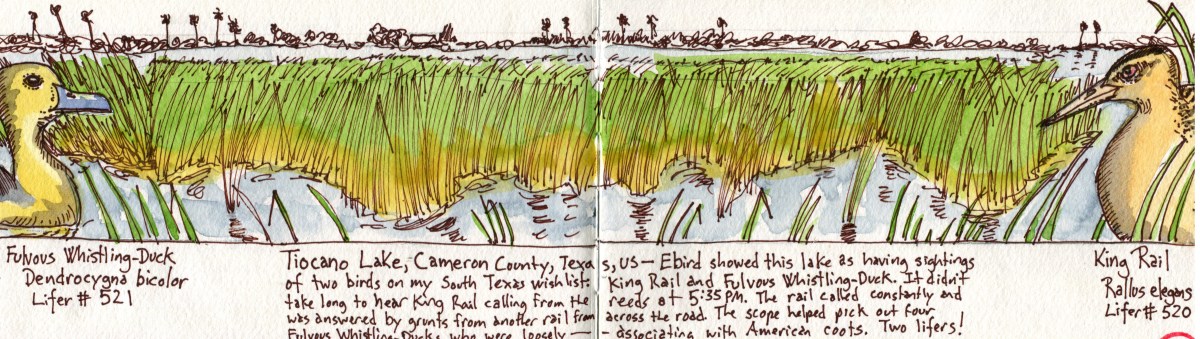 Fulvous Whistling-Duck
Dendrocygna bicolor
Lifer # 521
Tiocano Lake, Cameron County, Texas, US — Ebird showed this lake as having sightings
of two birds on my South Texas wishlist: King Rail and Fulvous Whistling-Duck. It didn't
take long to hear King Rail calling from the reeds at 5:35 PM. The rail called constantly and
was answered by grunts from another rail from across the road. The scope helped pick out four
Fulvous Whistling-Ducks who were loosely — - associating with American coots. Two lifers!
King Rail
Rallus elegans
Lifer # 520